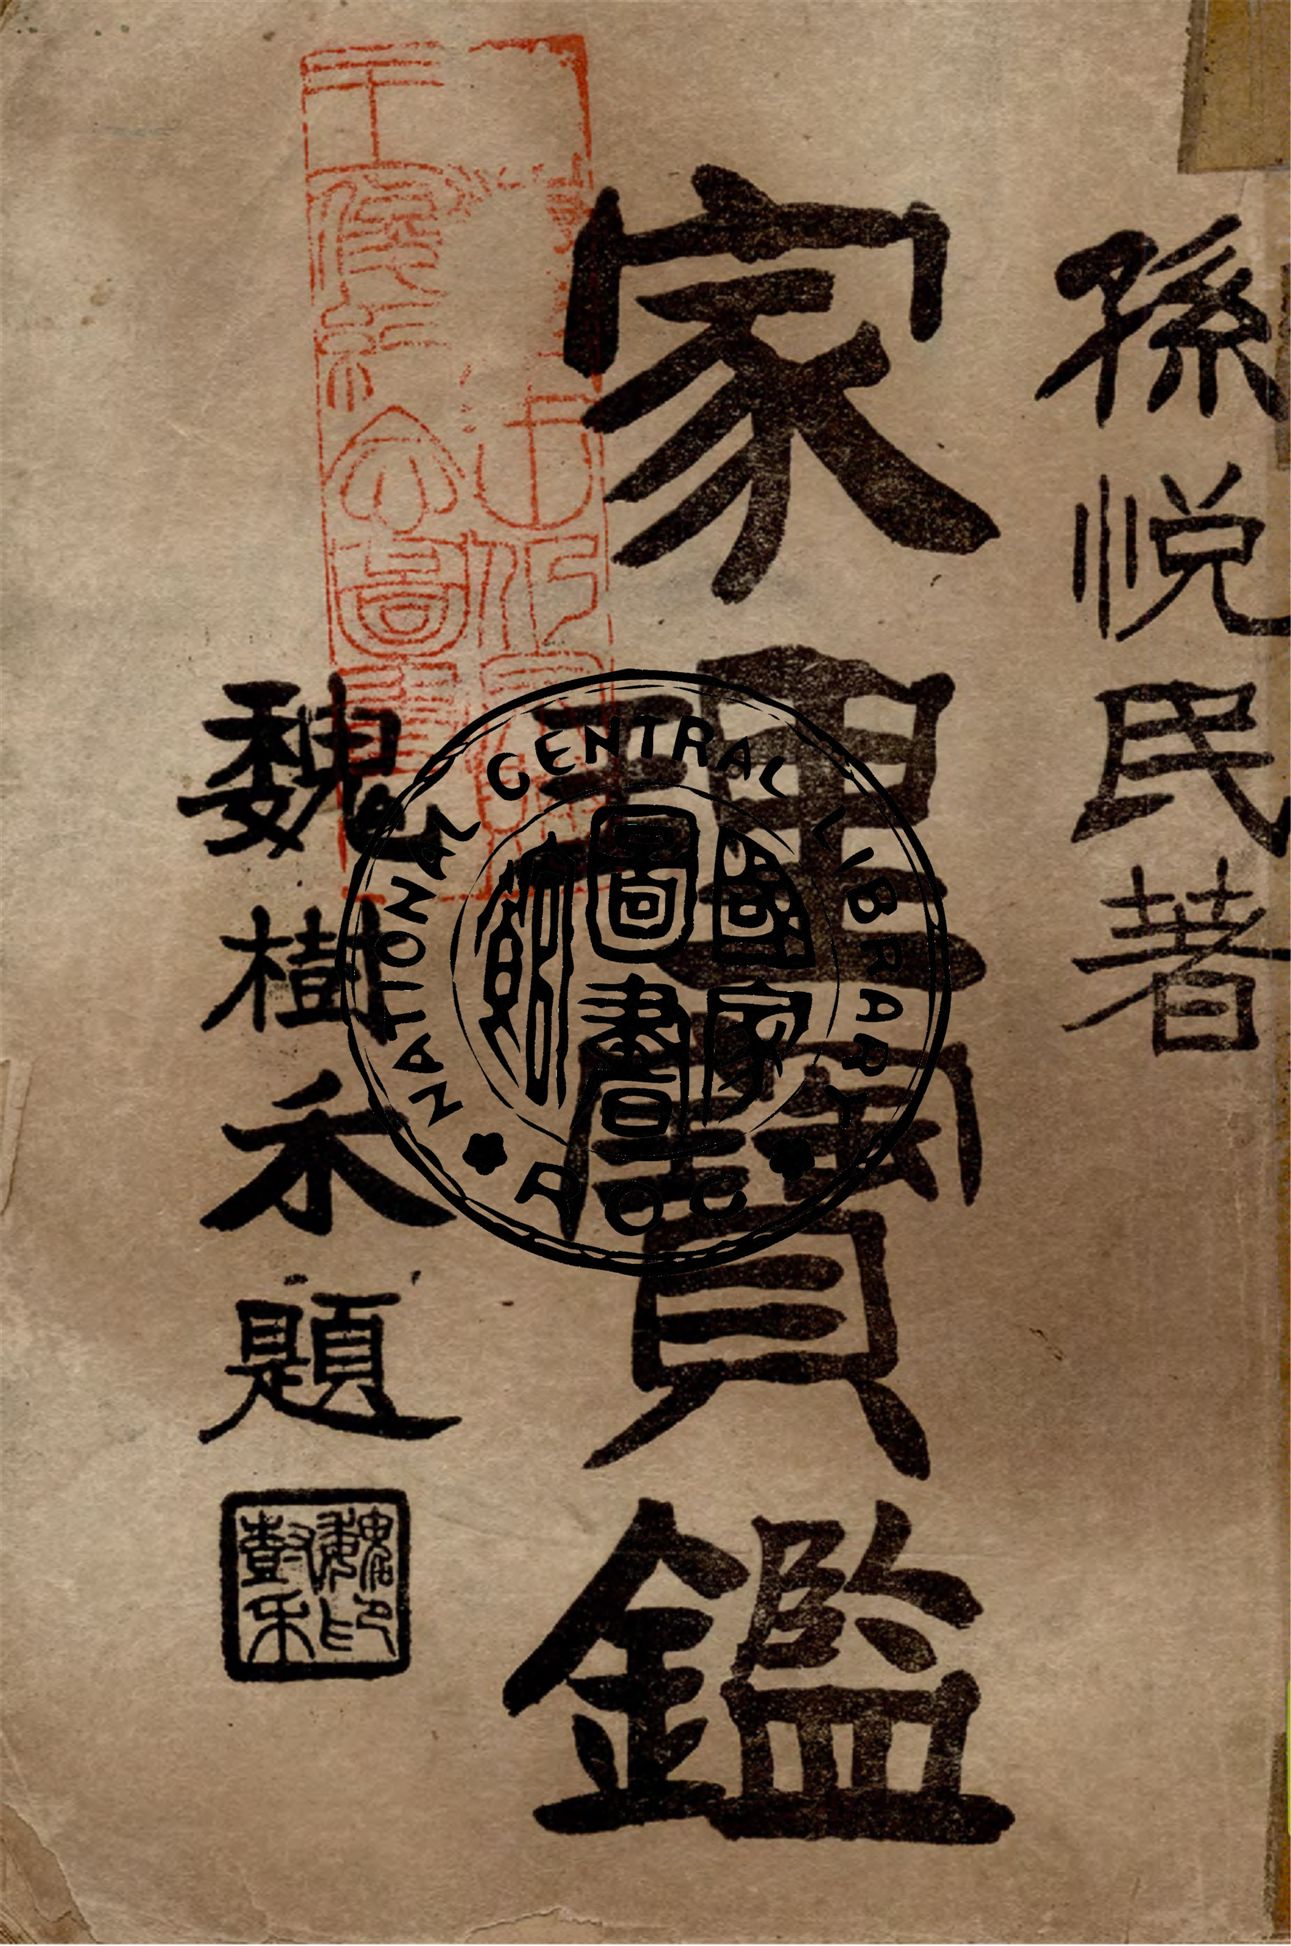 孫悦民著
家理寶鑑
魏樹禾題
魏印樹禾
NATIONAL CENTRAL LIBRARY
國家
圖書
館
ROC